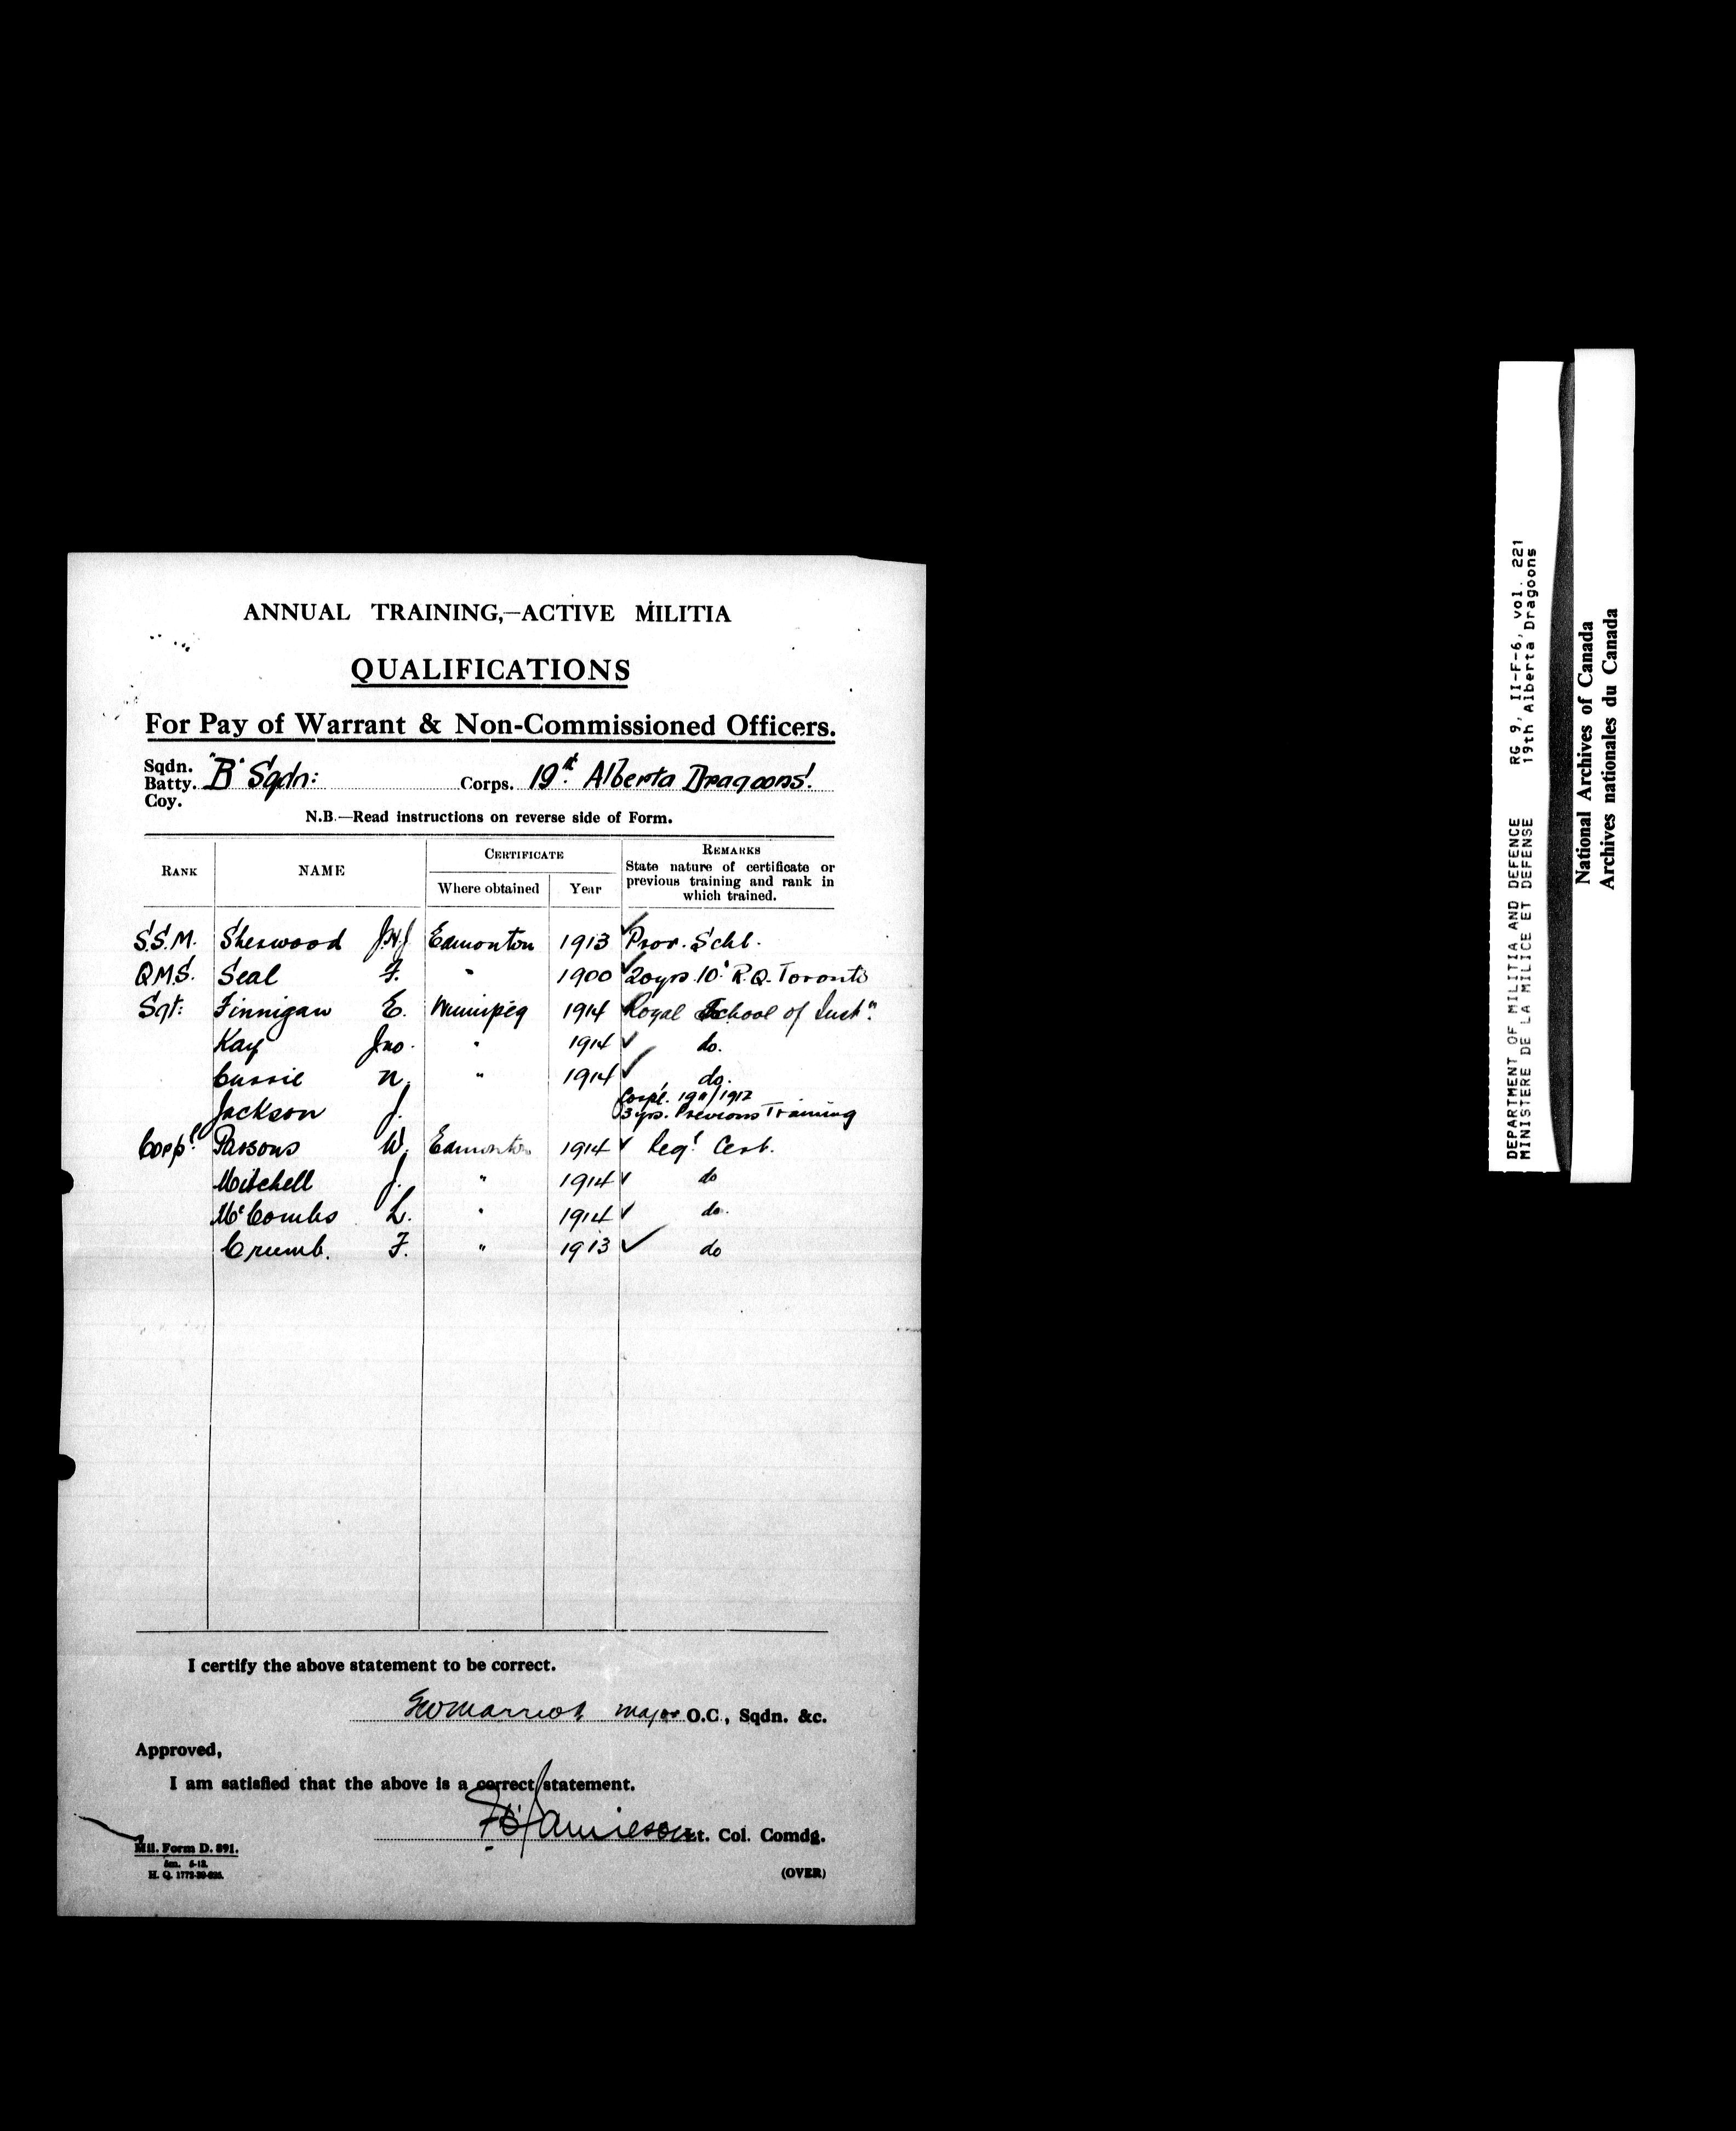 ANNUAL TRAINING,—ACTIVE MILITIA
QUALIFICATIONS
For Pay of Warrant & Non-Commissioned Officers.
Sqdn.
Batty. "B" Sqdn: Corps. 19th Alberta Dragoons.
Coy.
N.B.—Read instructions on reverse side of Form.
RANK NAME CERTIFICATE REMARKS
Where obtained Year State nature of certificate or
previous training and rank in
which trained.
S.S.M. Sherwood J.H.J. Edmonton 1913 Prov. Schl.
Q.M.S. Seal F. " 1900 20yrs. 10th R.G. Toronto
Sgt: Finnigan E. Winnipeg 1914 Royal School of Instn.
Kay Jno. " 1914 do.
Currie N. " 1914 do.
Jackson J. Corpl. 1911/1912
3 yrs. Previous Training
Corpl Parsons W. Edmonton 1914 Regl Cert.
Mitchell J. " 1914 do
McCombs L. " 1914 do.
Crumb. F. " 1913 do
I certify the above statement to be correct.
Marriott Major O.C., Sqdn. &c.
Approved,
I am satisfied that the above is a correct statement.
F.C. Jamieson Lt. Col. Comdg.
Mil. Form D. 891.
5m. 5-13.
H. Q. 1772-39-
(OVER)
DEPARTMENT OF MILITIA AND DEFENCE RG 9, II-F-6, vol. 221
MINISTERE DE LA MILICE ET DEFENSE 19th Alberta Dragoons
National Archives of Canada
Archives nationales du Canada